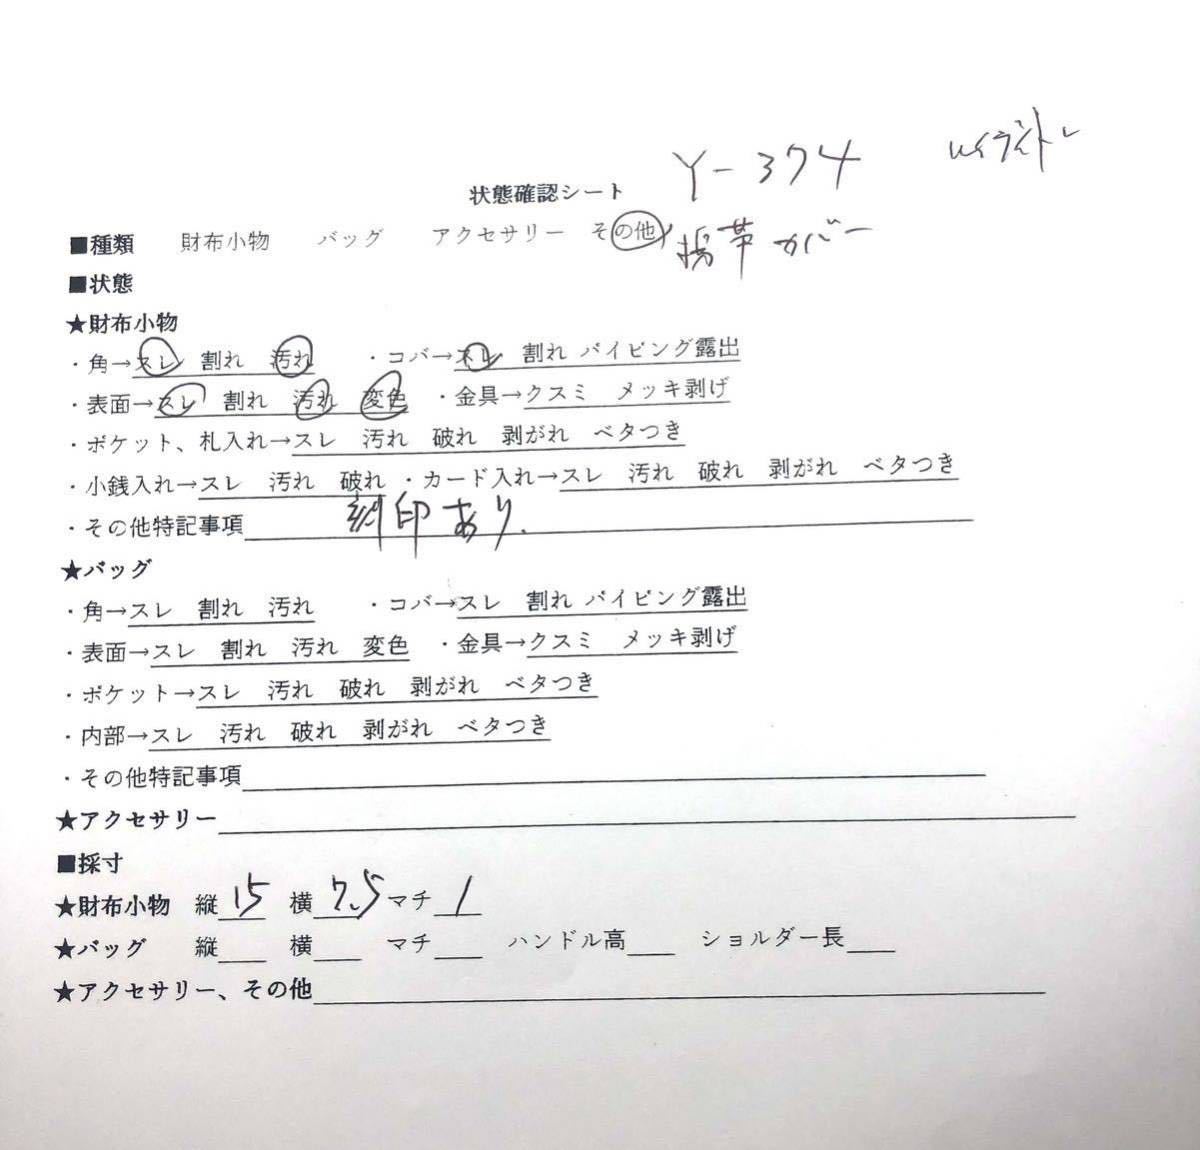 Y-374
状態確認シート
■種類 財布小物 バッグ アクセサリー その他 携帯カバー
■状態
★財布小物
・角→スレ 割れ 汚れ ・コバ→スレ 割れ パイピング露出
・表面→スレ 割れ 汚れ 変色 ・金具→クスミ メッキ剥げ
・ポケット、札入れ→スレ 汚れ 破れ 剥がれ ベタつき
・小銭入れ→スレ 汚れ 破れ ・カード入れ→スレ 汚れ 破れ 剥がれ ベタつき
・その他特記事項 刻印あり.
★バッグ
・角→スレ 割れ 汚れ ・コバ→スレ 割れ パイピング露出
・表面→スレ 割れ 汚れ 変色 ・金具→クスミ メッキ剥げ
・ポケット→スレ 汚れ 破れ 剥がれ ベタつき
・内部→スレ 汚れ 破れ 剥がれ ベタつき
・その他特記事項
★アクセサリー
■採寸
★財布小物 縦15 横7.5 マチ1
★バッグ 縦 横 マチ ハンドル高 ショルダー長
★アクセサリー、その他